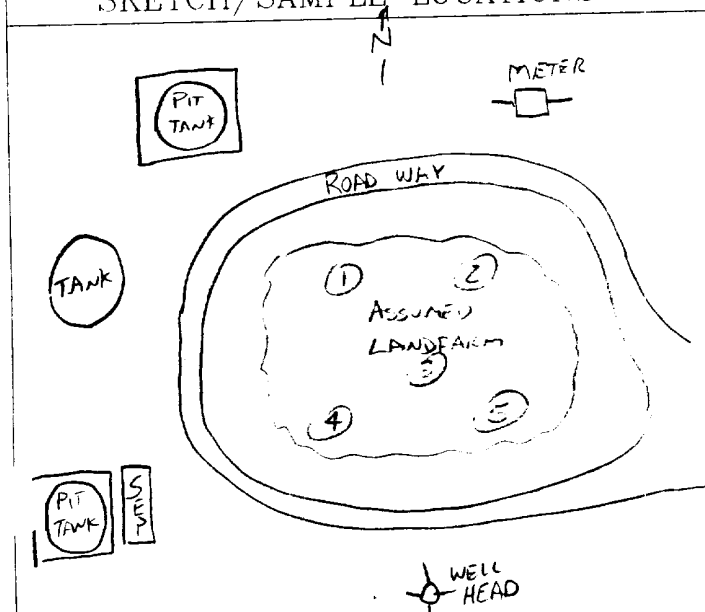 SKETCH/SAMPLE LOCATIONS
N
METER
PIT
TANK
ROAD WAY
TANK
1
2
ASSUMED
LANDFARM
3
4
5
PIT
TANK
SEP
WELL
HEAD